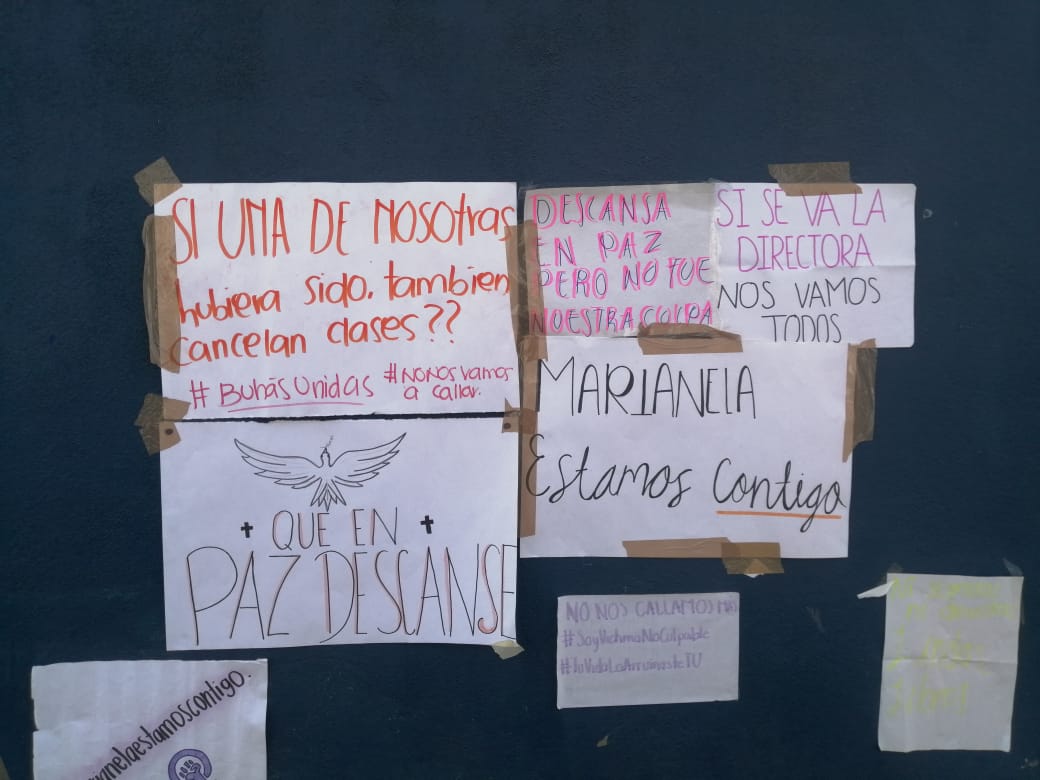 SI UNA DE NOSOtras
hubiera sido. tambien
cancelan clases??
# BuhāsUnidas #NONOS vamos
a callar.
DESCANSA
EN PAZ
PERO NO FUE
NUESTRA CULPA
SI SE VA LA
DIRECTORA
NOS VAMOS
TODOS
MARIANELA
Estamos Contigo
QUE EN
PAZ DESCANSE
NO NOS CALLAMOS MÁS
#SoyVictimaNoCulpable
#tuVidaLaArruinasteTU
nelaestamoscontigo.